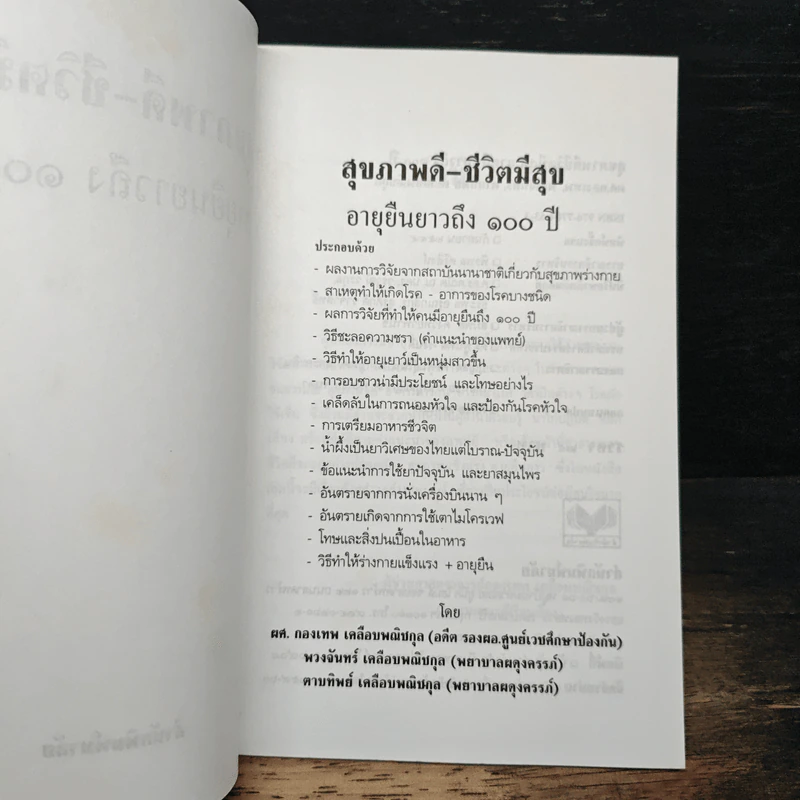 สุขภาพดี-ชีวิตมีสุข
อายุยืนยาวถึง ๑๐๐ ปี
ประกอบด้วย
- ผลงานการวิจัยจากสถาบันนานาชาติเกี่ยวกับสุขภาพร่างกาย
- สาเหตุทำให้เกิดโรค - อาการของโรคบางชนิด
- ผลการวิจัยที่ทำให้คนมีอายุยืนถึง ๑๐๐ ปี
- วิธีชะลอความชรา (คำแนะนำของแพทย์)
- วิธีทำให้อายุเยาว์เป็นหนุ่มสาวขึ้น
- การอบซาวน่ามีประโยชน์ และโทษอย่างไร
- เคล็ดลับในการถนอมหัวใจ และป้องกันโรคหัวใจ
- การเตรียมอาหารชีวจิต
- น้ำผึ้งเป็นยาวิเศษของไทยแต่โบราณ-ปัจจุบัน
- ข้อแนะนำการใช้ยาปัจจุบัน และยาสมุนไพร
- อันตรายจากการนั่งเครื่องบินนาน ๆ
- อันตรายเกิดจากการใช้เตาไมโครเวฟ
- โทษและสิ่งปนเปื้อนในอาหาร
- วิธีทำให้ร่างกายแข็งแรง + อายุยืน
โดย
ผศ. กองเทพ เคลือบพณิชกุล (อดีต รองผอ.ศูนย์เวชศึกษาป้องกัน)
พวงจันทร์ เคลือบพณิชกุล (พยาบาลผดุงครรภ์)
ตาบทิพย์ เคลือบพณิชกุล (พยาบาลผดุงครรภ์)